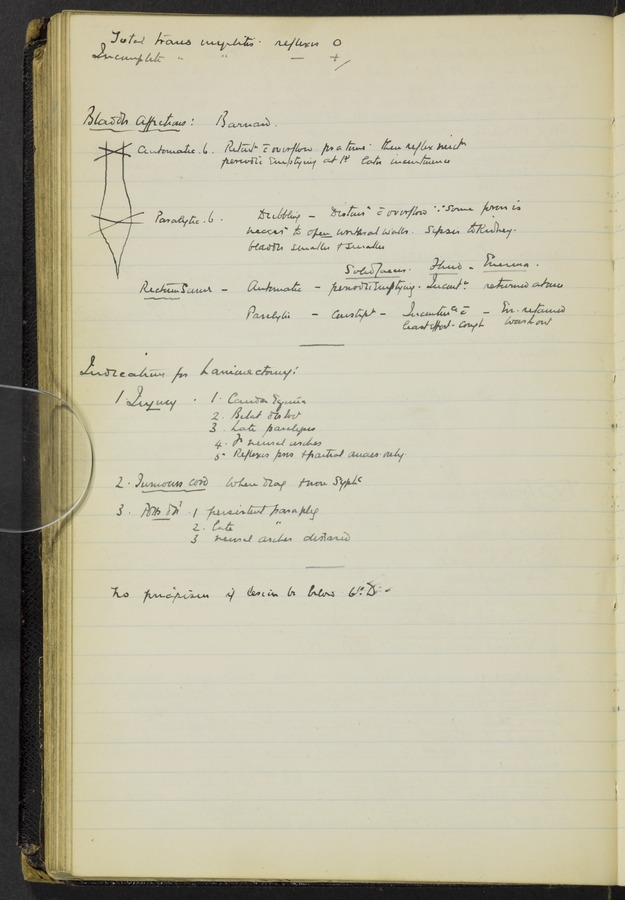 Total trans myelitis. reflexes O
Incomplete " " — +
Bladder Affections: Barnard.
Automatic. b. Retent c̄ overflow for a time then reflex
periodic emptying at 1st later incontinence
Paralytic. b. Dribbling — Distens c̄ overflow ∵ some is
necess to open walls. Sepsis to Kidney.
bladder smaller & smaller
Solid faeces. Fluid - Enema.
Rectum Same — Automatic — periodic emptying. Incont. returned at once
Paralytic — Constipt — c̄ — En. retained
least effort. cough wash out
Indications for Laminectomy:
1. Injury. 1. Cauda Equina
2. Bilat
3. Late paralysis
4. # neural arches
5. Reflexes pres & partial only
2. Tumours cord When diag & non Syph
3. Potts 1 persistent paraplg
2. late "
3 neural arches diseased
No priapism if lesion be below 6th D.